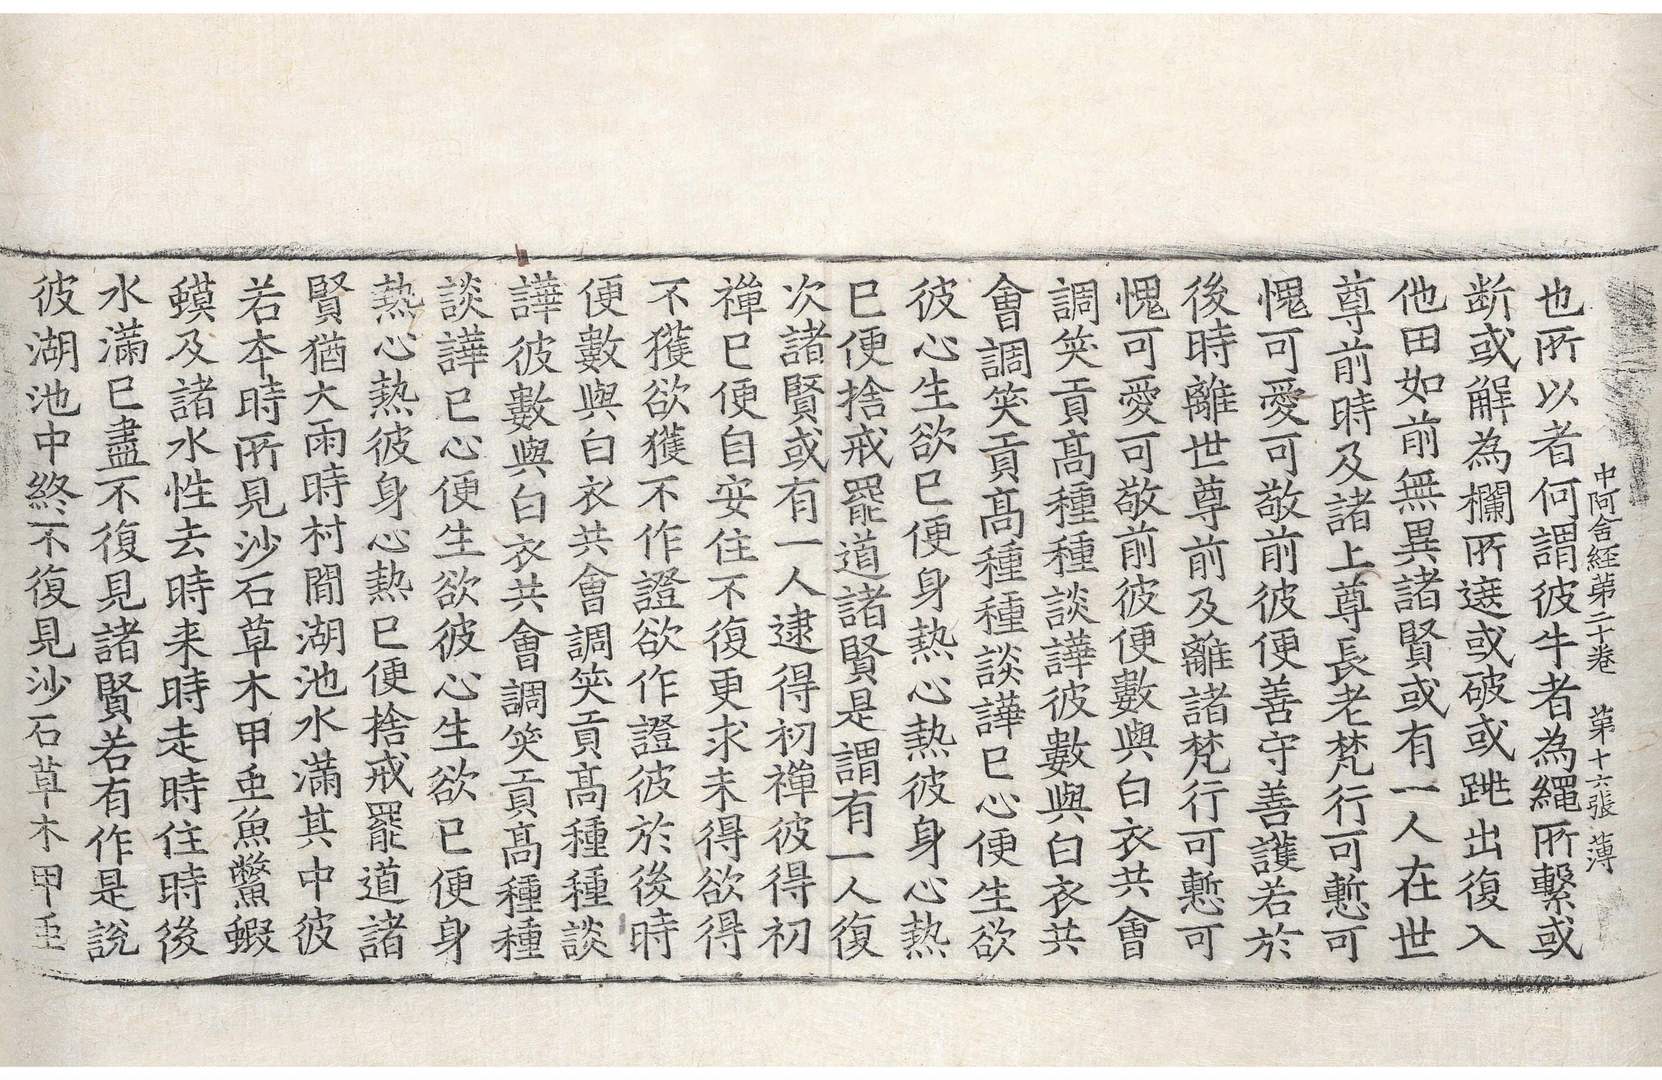 中阿含経第二十卷　第十六張　薄
也所以者何謂彼牛者為繩所繫或
断或解為欄所遮或破或跳出復入
他田如前無異諸賢或有一人在世
尊前時及諸上尊長老梵行可慙可
愧可愛可敬前彼便善守善護若於
後時離世尊前及離諸梵行可慙可
愧可愛可敬前彼便數與白衣共會
調笑貢髙種種談譁彼數與白衣共
會調笑貢髙種種談譁已心便生欲
彼心生欲已便身熱心熱彼身心熱
已便捨戒罷道諸賢是謂有一人復
次諸賢或有一人逮得初禪彼得初
禪已便自安住不復更求未得欲得
不獲欲獲不作證欲作證彼於後時
便數與白衣共會調笑貢髙種種談
譁彼數與白衣共會調笑貢髙種種
談譁已心便生欲彼心生欲已便身
熱心熱彼身心熱已便捨戒罷道諸
賢猶大雨時村間湖池水滿其中彼
若本時所見沙石草木甲虫魚鱉蝦
蟆及諸水性去時来時走時住時後
水滿已盡不復見諸賢若有作是說
彼湖池中終不復見沙石草木甲虫